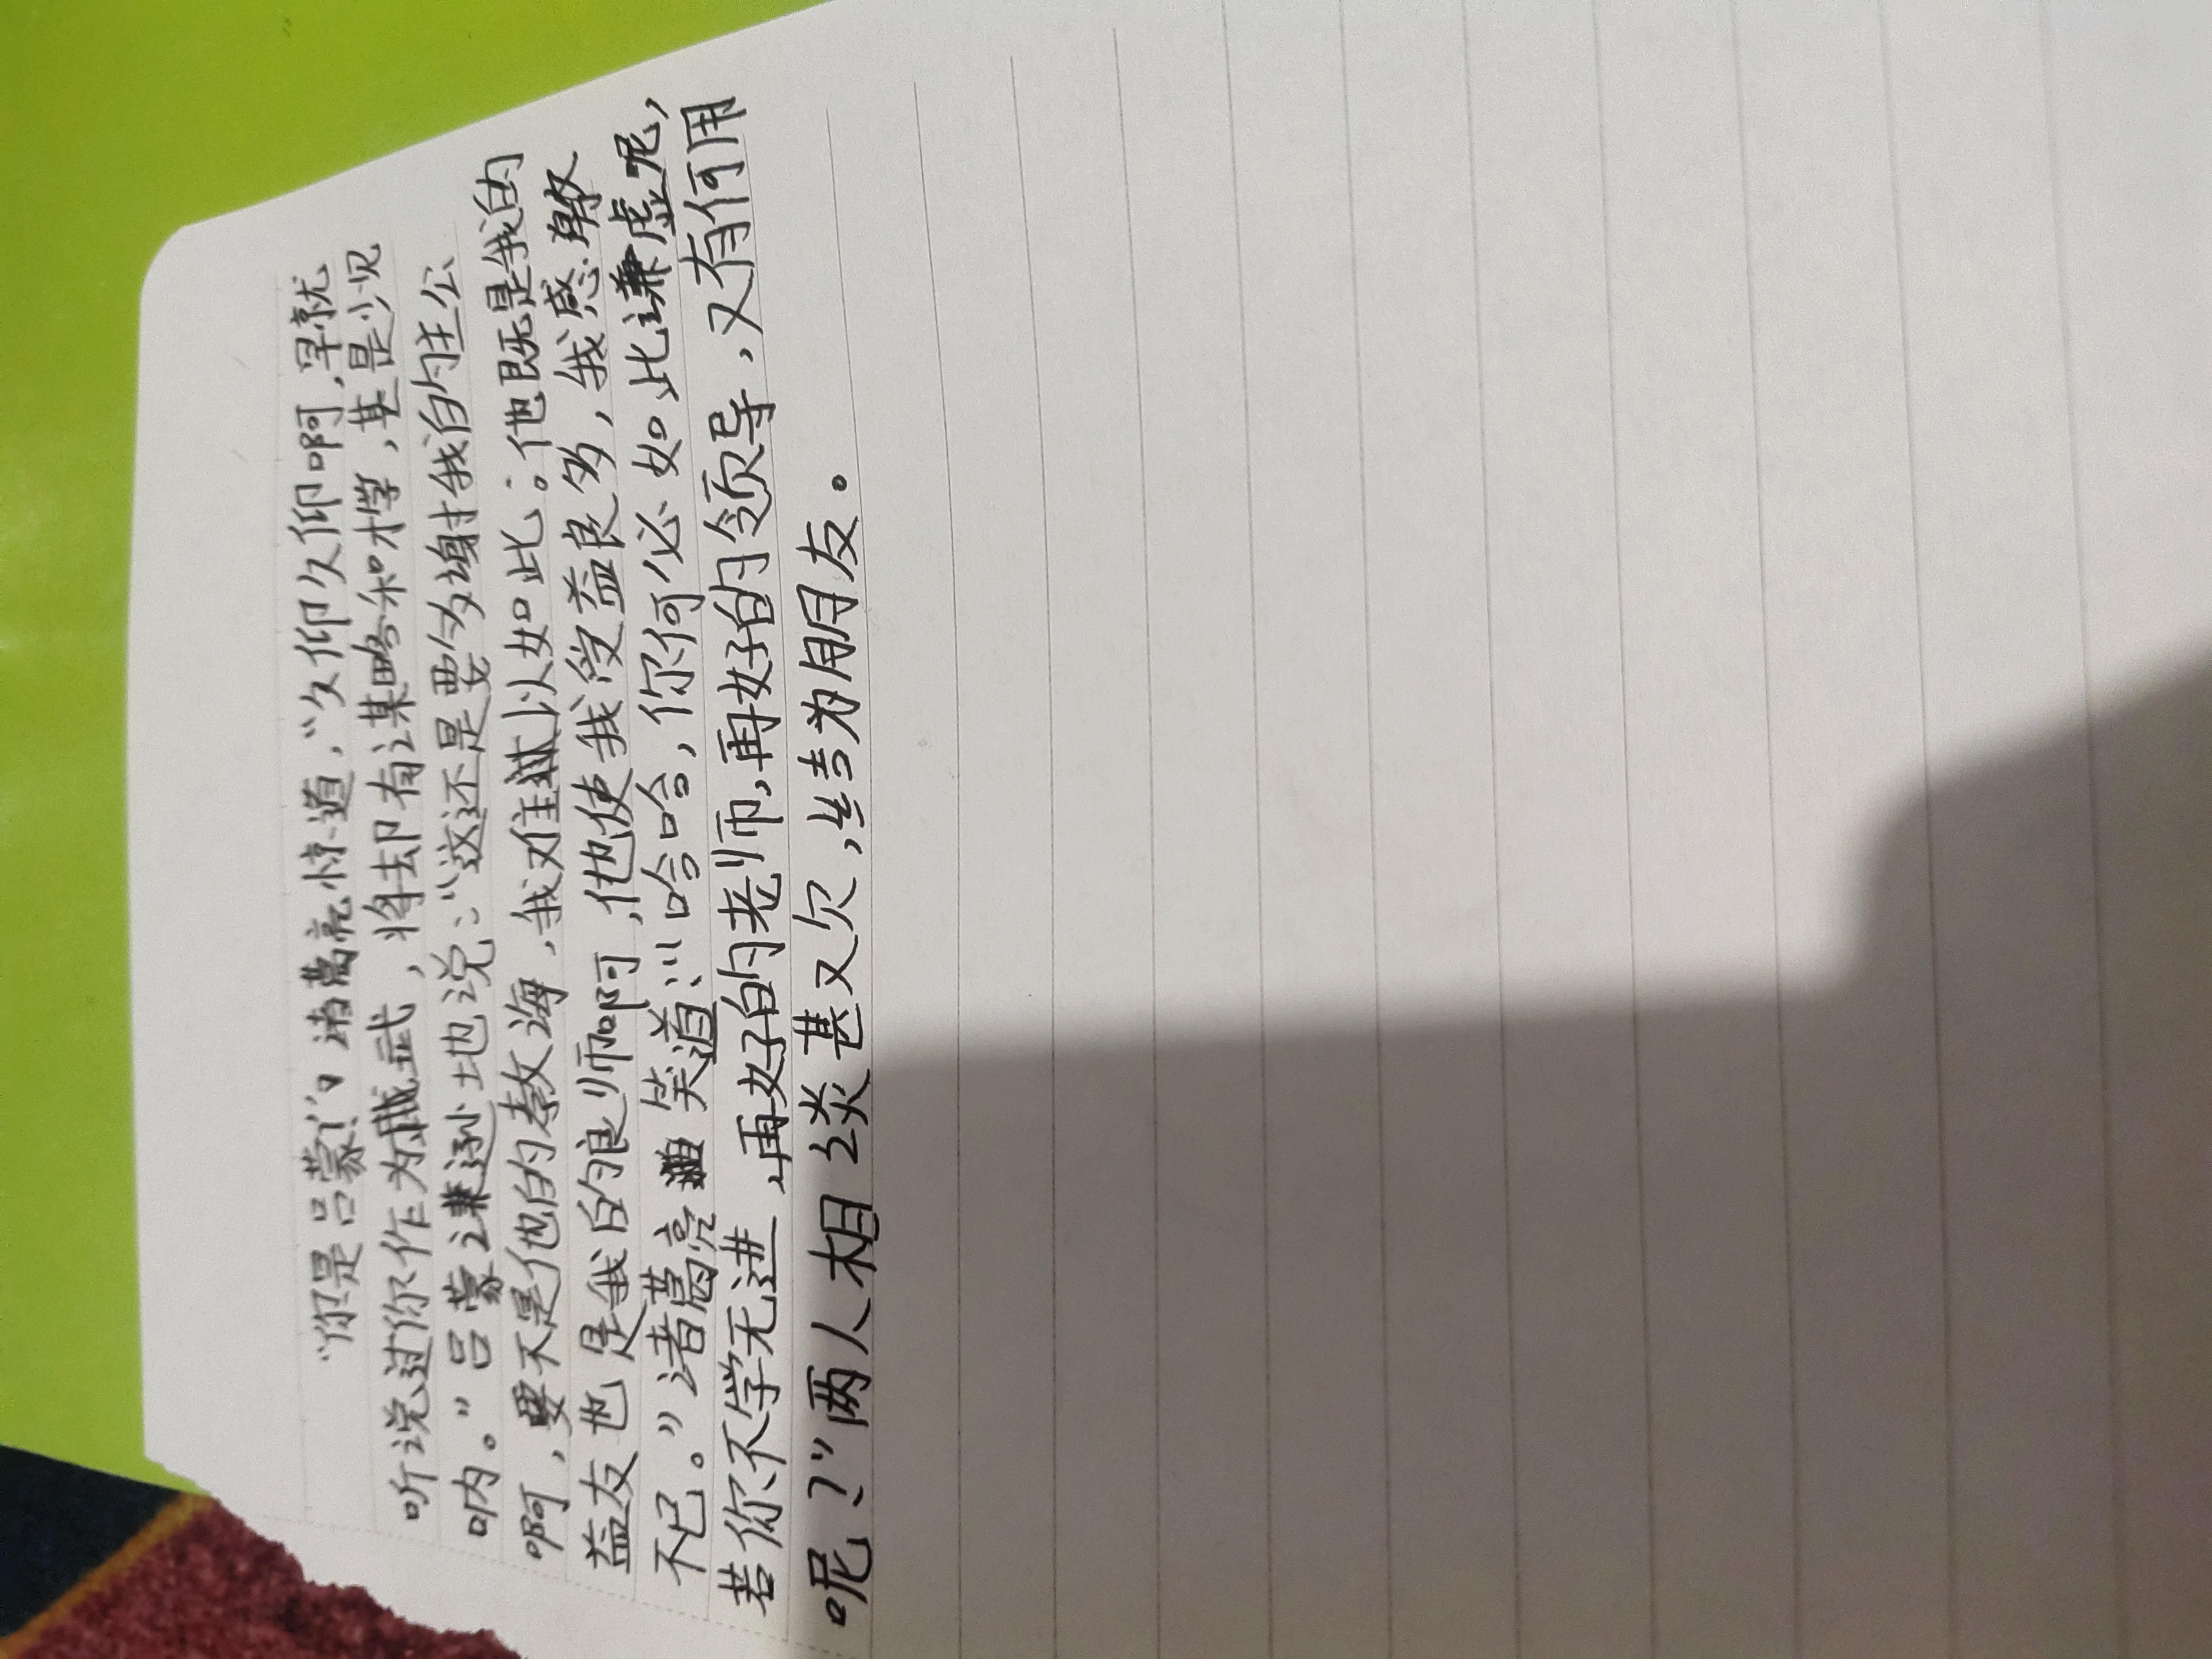 “你是吕蒙！”诸葛亮惊道，“久仰久仰啊，早就
听说过你作为武将，却有谋略和才学，甚是少见
呐。”吕蒙谦逊地说：“这还是要多谢我的主公
啊，要不是他的教海，我难以如此；他既是我的
益友也是我的良师啊，他使我受益良多，我感激
不已。”诸葛亮笑道：“哈哈，你何必如此谦虚呢，
若你不学无进，再好的老师，再好的领导，又有何用
呢？”两人相谈甚欢，结为朋友。